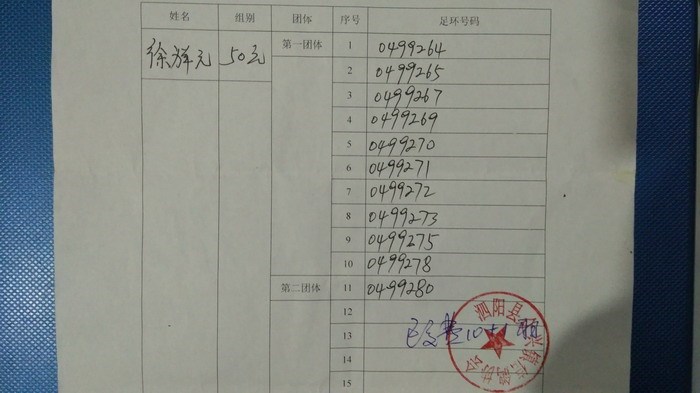 姓名 组别 团体 序号 足环号码
徐 元 50元 第一团体 1 0499264
2 0499265
3 0499267
4 0499269
5 0499270
6 0499271
7 0499272
8 0499273
9 0499275
10 0499278
第二团体 11 0499280
12
13 已交 10+1
14
15
泗阳县 兴 鸽协会